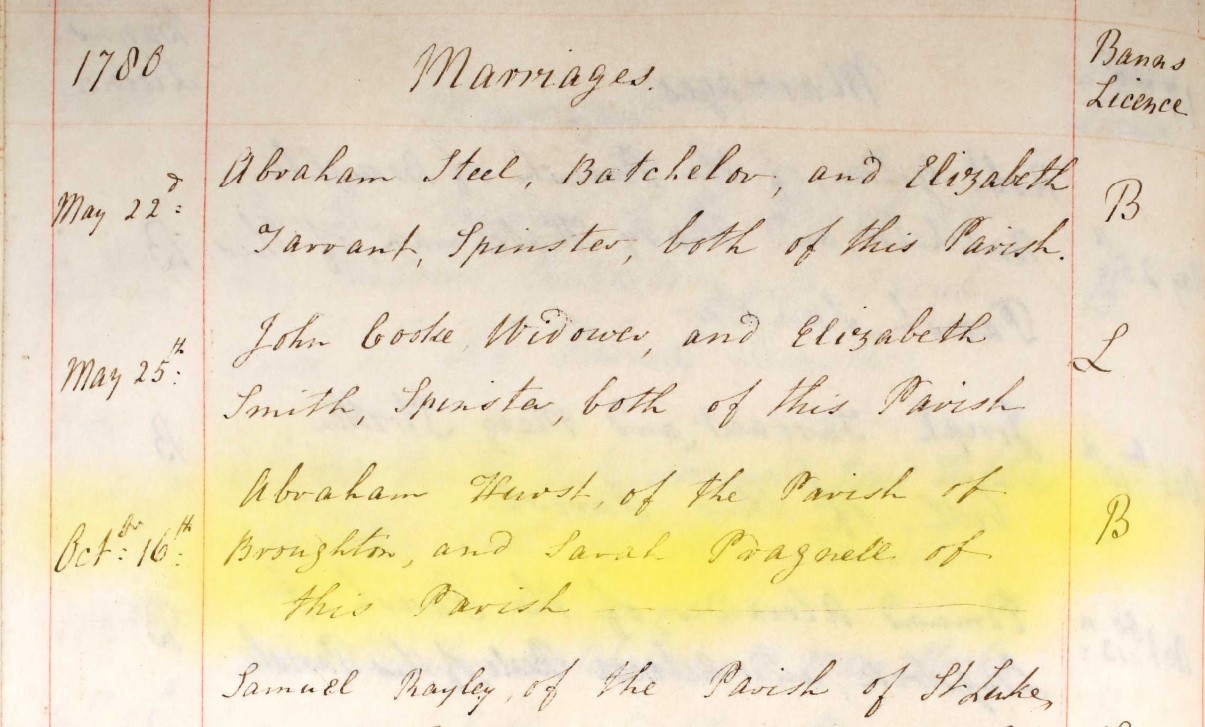 1780 Marriages. Banns
Licence
May 22d: Abraham Steel, Batchelor, and Elizabeth B
Tarrant, Spinster, both of this Parish.
May 25th: John Cooke, Widower, and Elizabeth L
Smith, Spinster, both of this Parish
Octbr: 16th: Abraham Hurst, of the Parish of B
Broughton, and Sarah Pragnell of
this Parish
Samuel Rayley, of the Parish of St Luke,